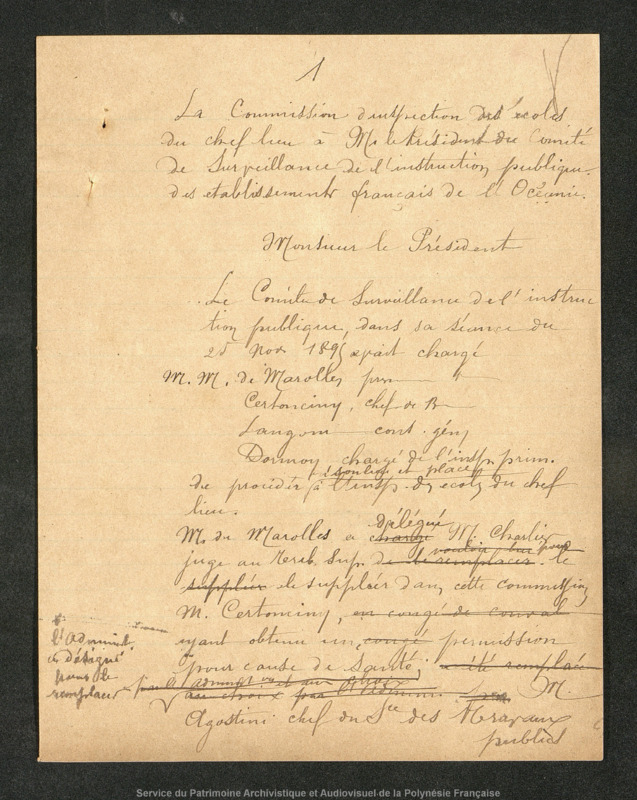 1
La Commission d'inspection des écoles
du chef lieu à M. le Président du Comité
de Surveillance de l'instruction publique
des etablissements français de l'Océanie.
Monsieur le Président
Le Comité de Surveillance de l'instruc
tion publique, dans sa séance du
25 Nov 1895 avait chargé
M. M. de Marolles
Certonciny, chef de B
Langomazino cont. gén,
Dormoy chargé de l'insp. prim.
de procéder à l'insp. des écoles du chef
lieu.
délégué
M. de Marolles a chargé M. Charlier
vouloir bien pour
juge au Trib. Sup. de le remplacer. le
suppléer le suppléer dans cette commission
M. Certonciny, en congé de conval
ayant obtenu un congé permission
pour cause de santé, a été remplacé
l'Administ.
a désigné
pour le
remplacer
au choix pour l'Admin. M.
Agostini chef du Sce des Travaux
publics
Service du Patrimoine Archivistique et Audiovisuel de la Polynésie Française